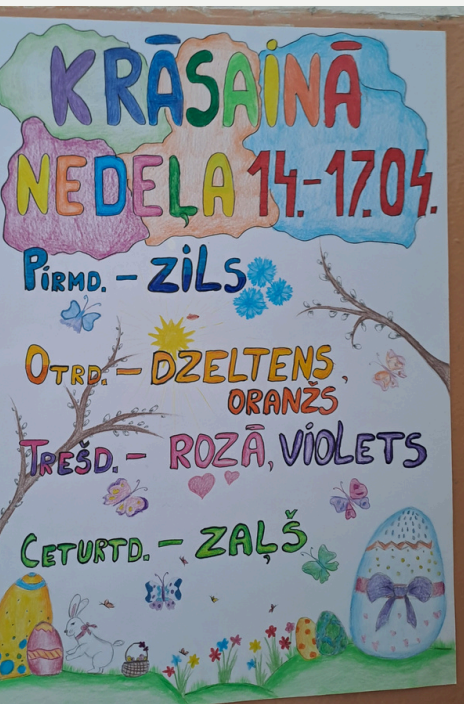 KRĀSAINĀ
NEDEĻA 14.-17.04.
PIRMD. - ZILS
OTRD. - DZELTENS,
ORANŽS
TREŠD. - ROZĀ, VIOLETS
CETURTD. - ZAĻŠ